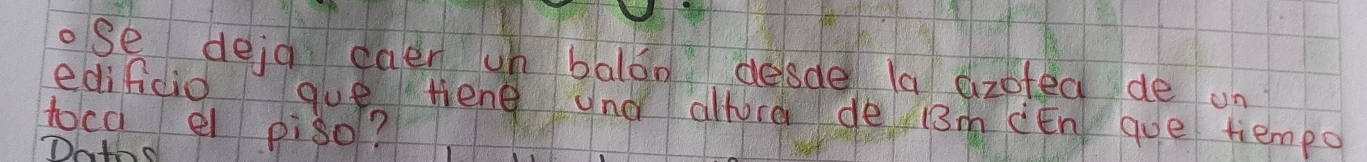 ° Se deja caer un balón desde la azotea de un
edificio que tiene una altura de 13m ¿En que tiempo
toca el piso?
Datos